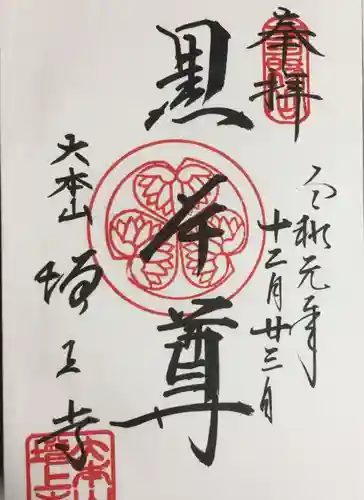 奉拝
令和元年
十二月廿三日
黒本尊
大本山
増上寺
大本山
増上寺